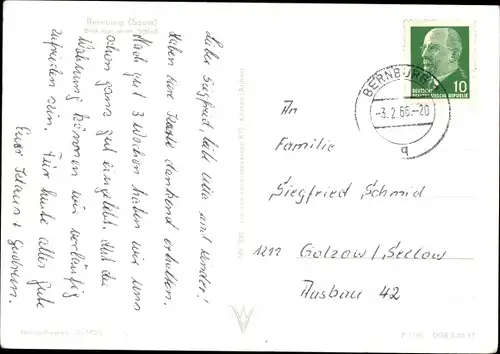 Bernburg (Saale)
Blick zum alten Schloß
Liebe Siegfried, liebe Uta und Kinder!
Haben Eure Karte dankend erhalten.
Nach gut 3 Wochen haben wir uns
schon ganz gut eingelebt. Mit der
Wohnung können wir vorläufig
zufrieden sein. Für heute alles Gute
Eure Klaus + Gudrun.
BERNBURG
-3.2.66.-20
q
DEUTSCHE
DEMOKRATISCHE REPUBLIK
10
An
Familie
Siegfried Schmid
1211 Golzow/Seelow
Ausbau 42